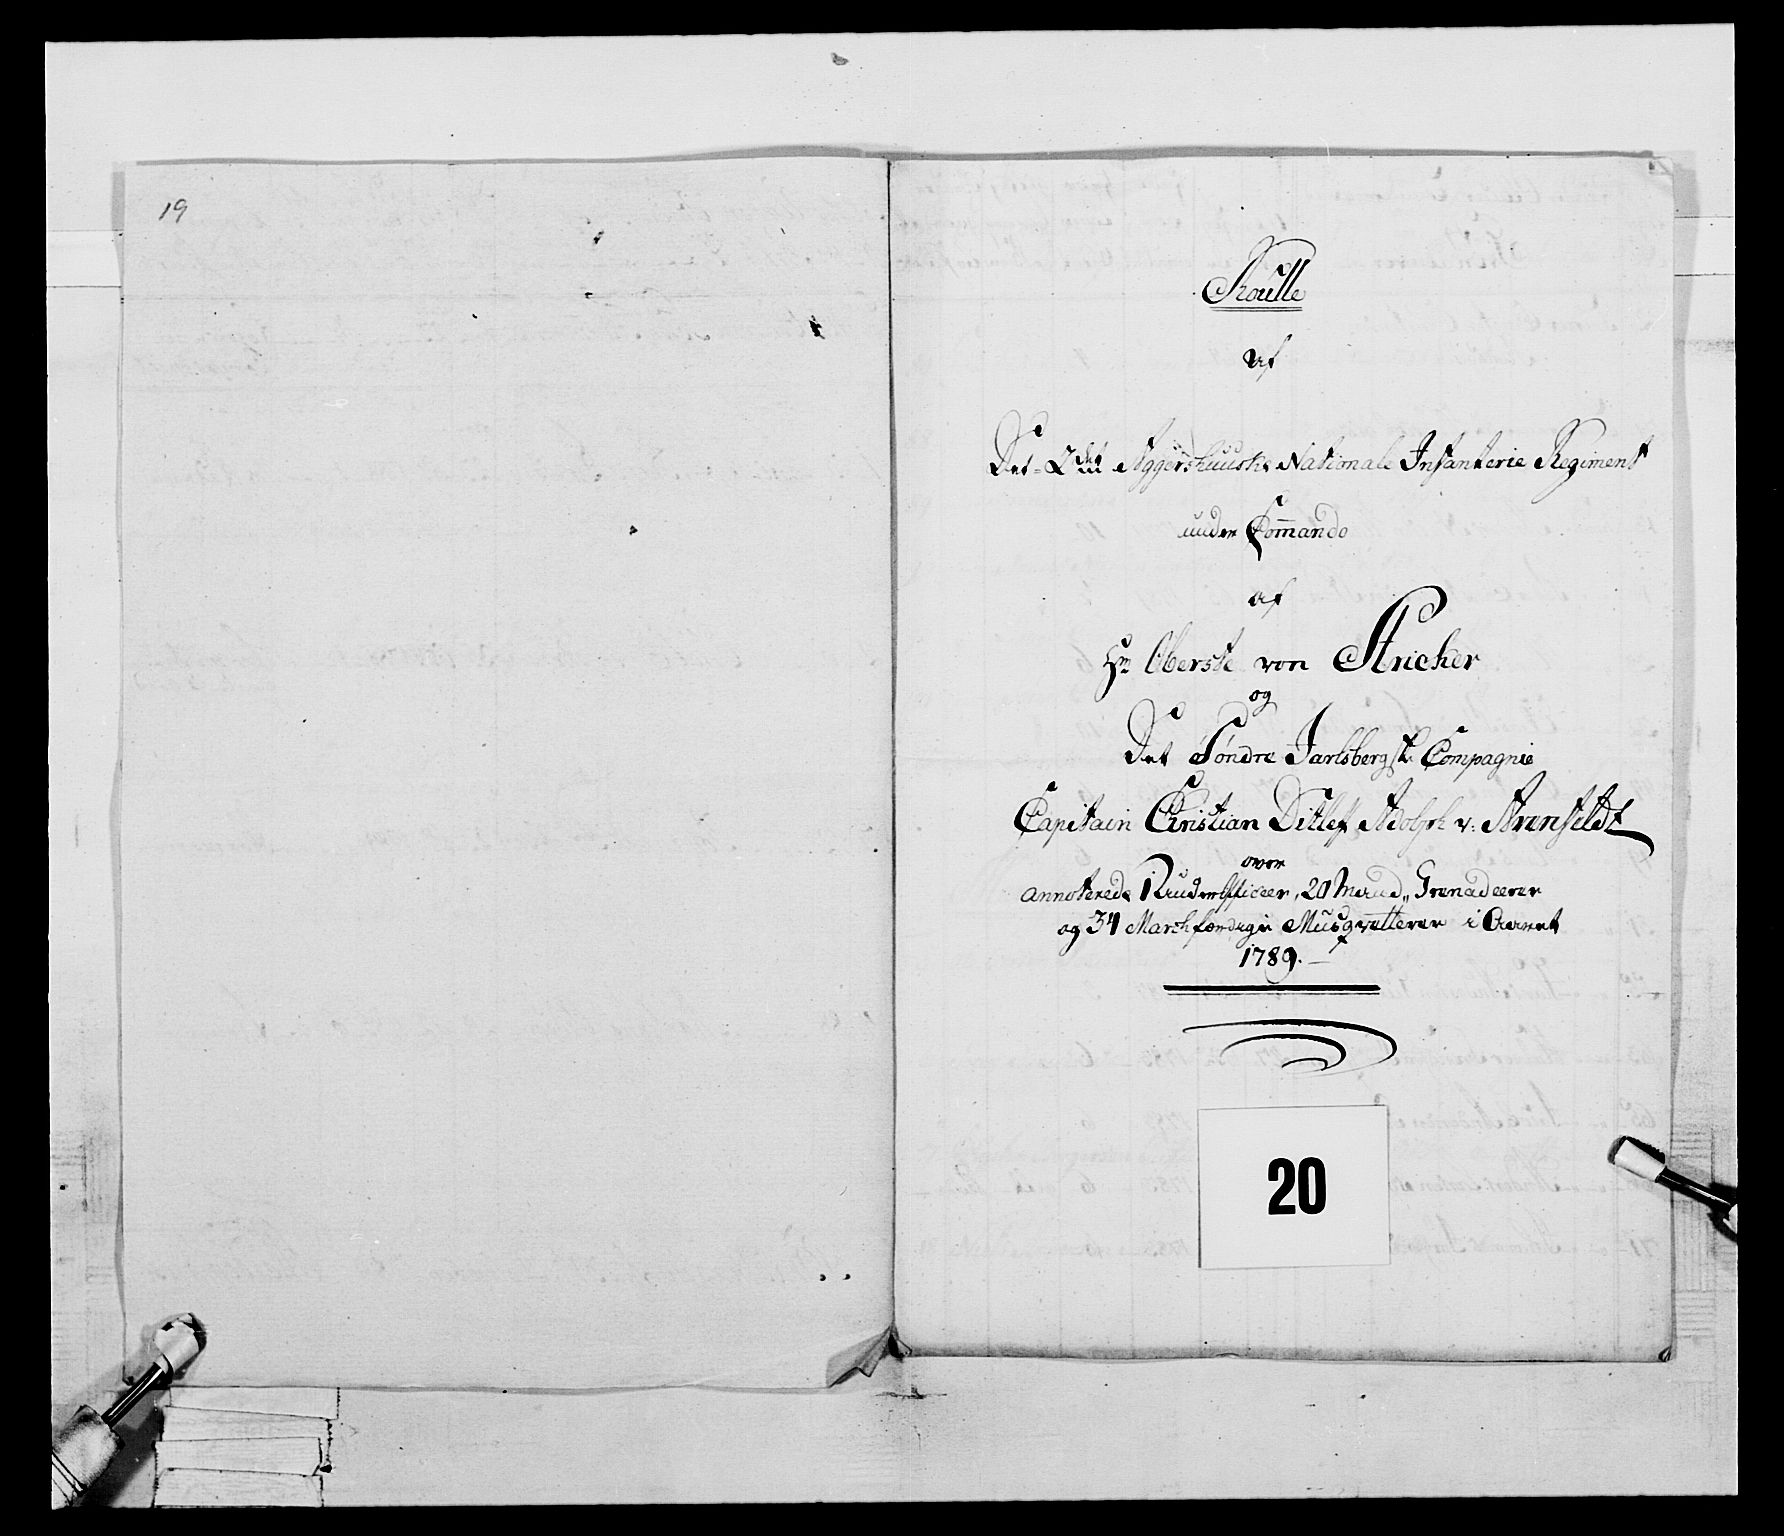 19
Roulle
af
Det 2det Aggershuuske Nationale Infanterie Regiment
under Com̄ando
af
Hr Oberste von Stricker
og
Det Søndre Jarlsbergske Compagnie
Capitain Christian Ditleff Adolph v: Arenfeldt
over
annoterede 1 Underofficeer, 20 Mand Grenadeerer
og 34 Marchfærdige Musqvetterer i Aaret
1789.
20